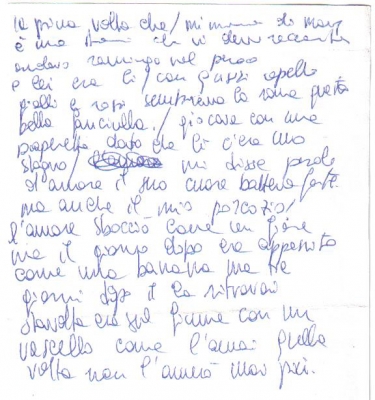 la prima volta che / mi
è una storia che vi devo raccontare
andavo ramingo nel parco
e lei era lì / con capelli
gialli e rosa sembrava la rana questa
bella fanciulla / giocava con una
paperella dato che lì c'era uno
stagno / mi disse parole
d'amore il suo cuore batteva forte
ma anche il mio porcozio /
l'amore sboccio come un fiore
ma il giorno dopo era appassito
come una banana ma tre
giorni dopo il la ritrovai
stavolta era sul fiume con un
vascello come l'amai quella
volta non l'amerò mai più.